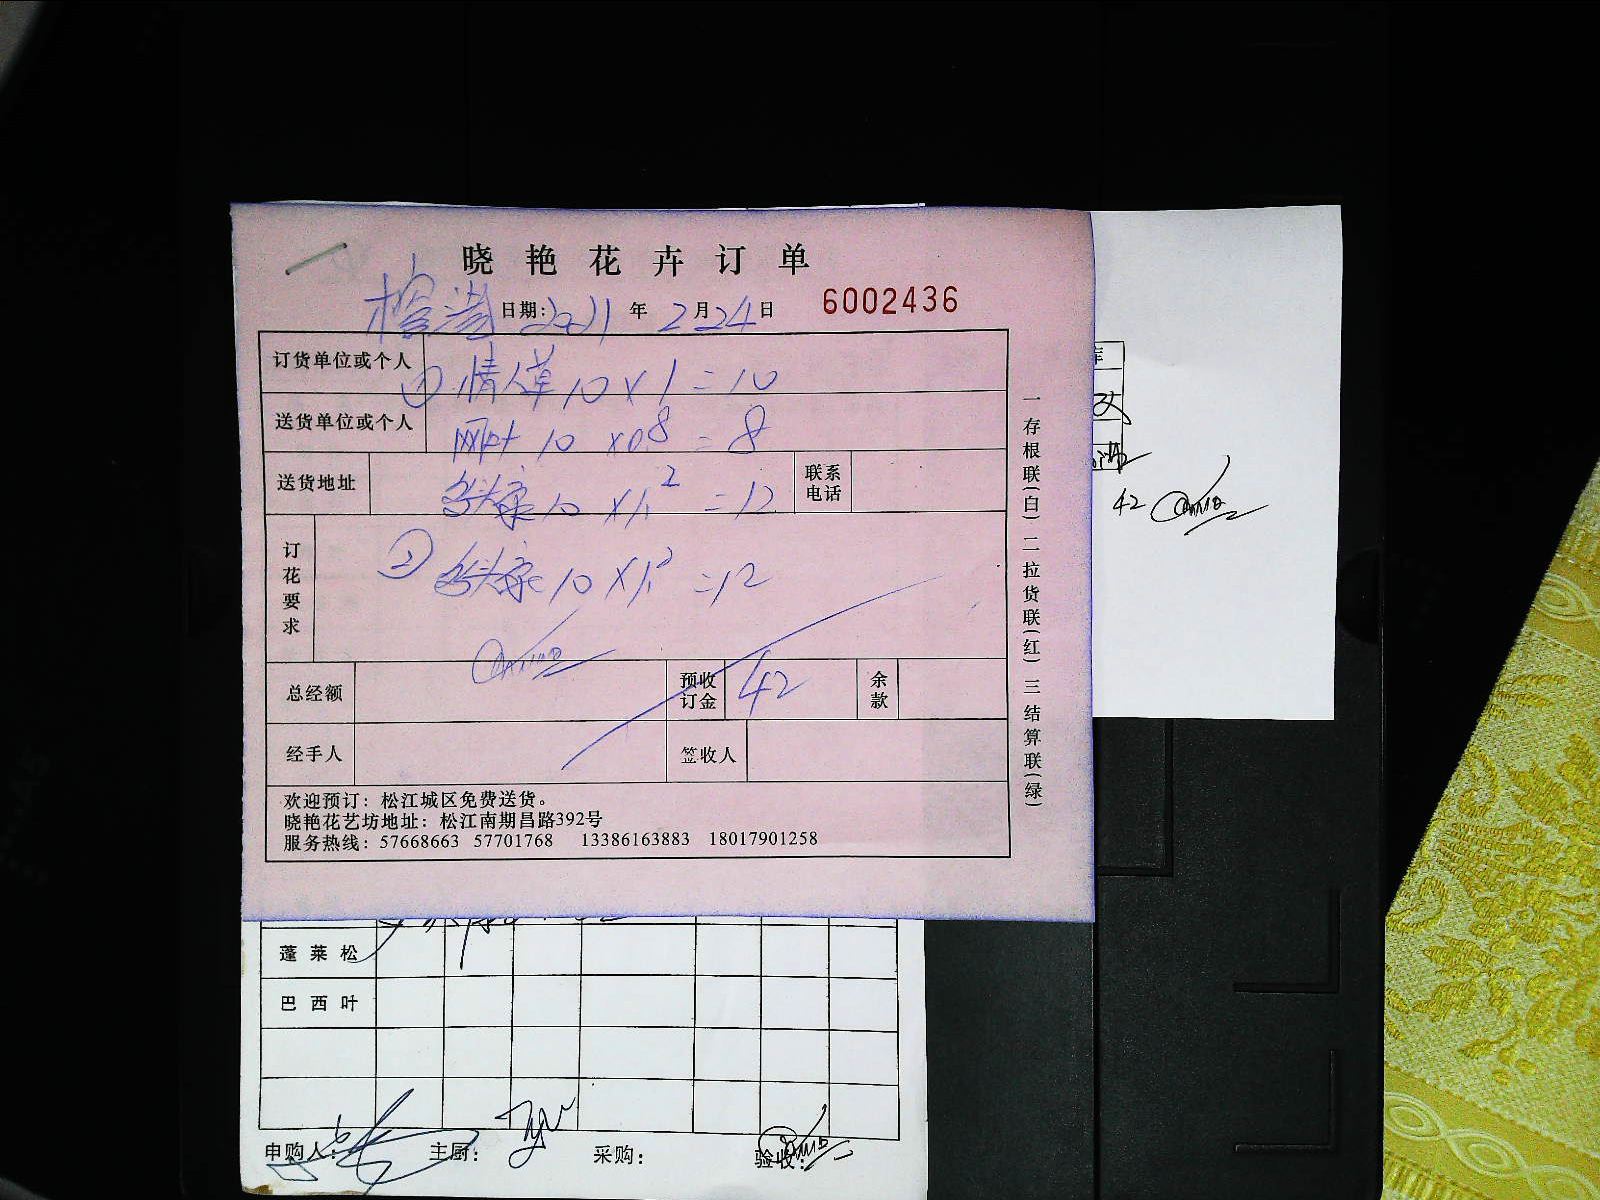 晓艳花卉订单
榕港 日期: 2011 年 2 月 24 日 6002436
订货单位或个人
① 情人草 10 × 1 = 10
送货单位或个人
网叶 10 × 0.8 = 8
送货地址
10 × 1.2 = 12
联系电话
订花要求
② 10 × 1.2 = 12
总经额
预收订金 42
余款
经手人
签收人
欢迎预订：松江城区免费送货。
晓艳花艺坊地址：松江南期昌路392号
服务热线：57668663 57701768 13386163883 18017901258
一存根联(白) 二拉货联(红) 三结算联(绿)
库
42
蓬莱松
巴西叶
申购人: 主厨: 采购: 验收: